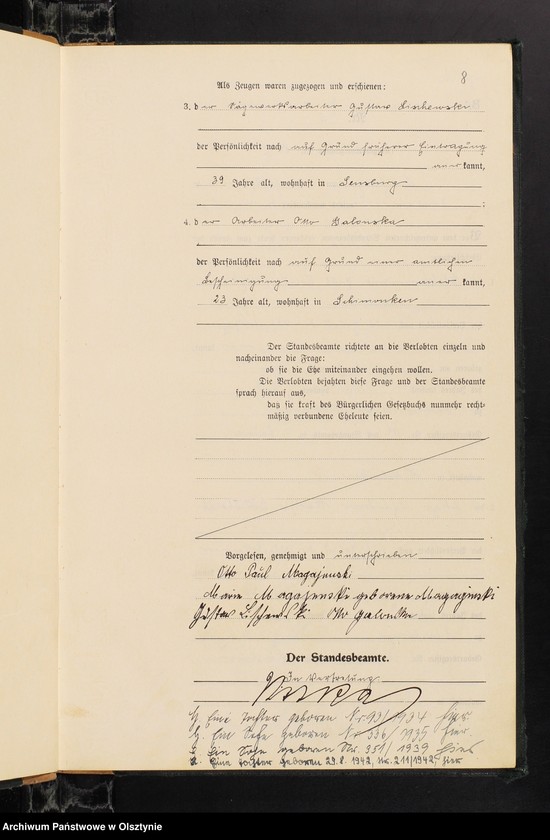 8
Als Zeugen waren zugezogen und erschienen:
3. der Sägewerksarbeiter Gustav Lischewski
der Persönlichkeit nach auf Grund früherer Eintragung
anerkannt,
39 Jahre alt, wohnhaft in Sensburg
;
4. der Arbeiter Otto
der Persönlichkeit nach auf Grund einer amtlichen
Bescheinigung anerkannt,
23 Jahre alt, wohnhaft in Schimonken
Der Standesbeamte richtete an die Verlobten einzeln und
nacheinander die Frage:
ob sie die Ehe miteinander eingehen wollen.
Die Verlobten bejahten diese Frage und der Standesbeamte
sprach hierauf aus,
daß sie kraft des Bürgerlichen Gesetzbuchs nunmehr recht-
mäßig verbundene Eheleute seien.
Vorgelesen, genehmigt und unterschrieben
Otto Paul Magajewski
Marie Magajewski geborene Magajewski
Gustav Lischewski Otto
Der Standesbeamte.
In Vertretung
1. Eine Tochter geboren Nr. 93/1934 hier
2. Ein Sohn geboren Nr. 336/1935 hier
3. Ein Sohn geboren Nr. 351/1939 hier
4. Eine Tochter geboren 29.8.1942, Nr. 211/1942, hier
Archiwum Państwowe w Olsztynie